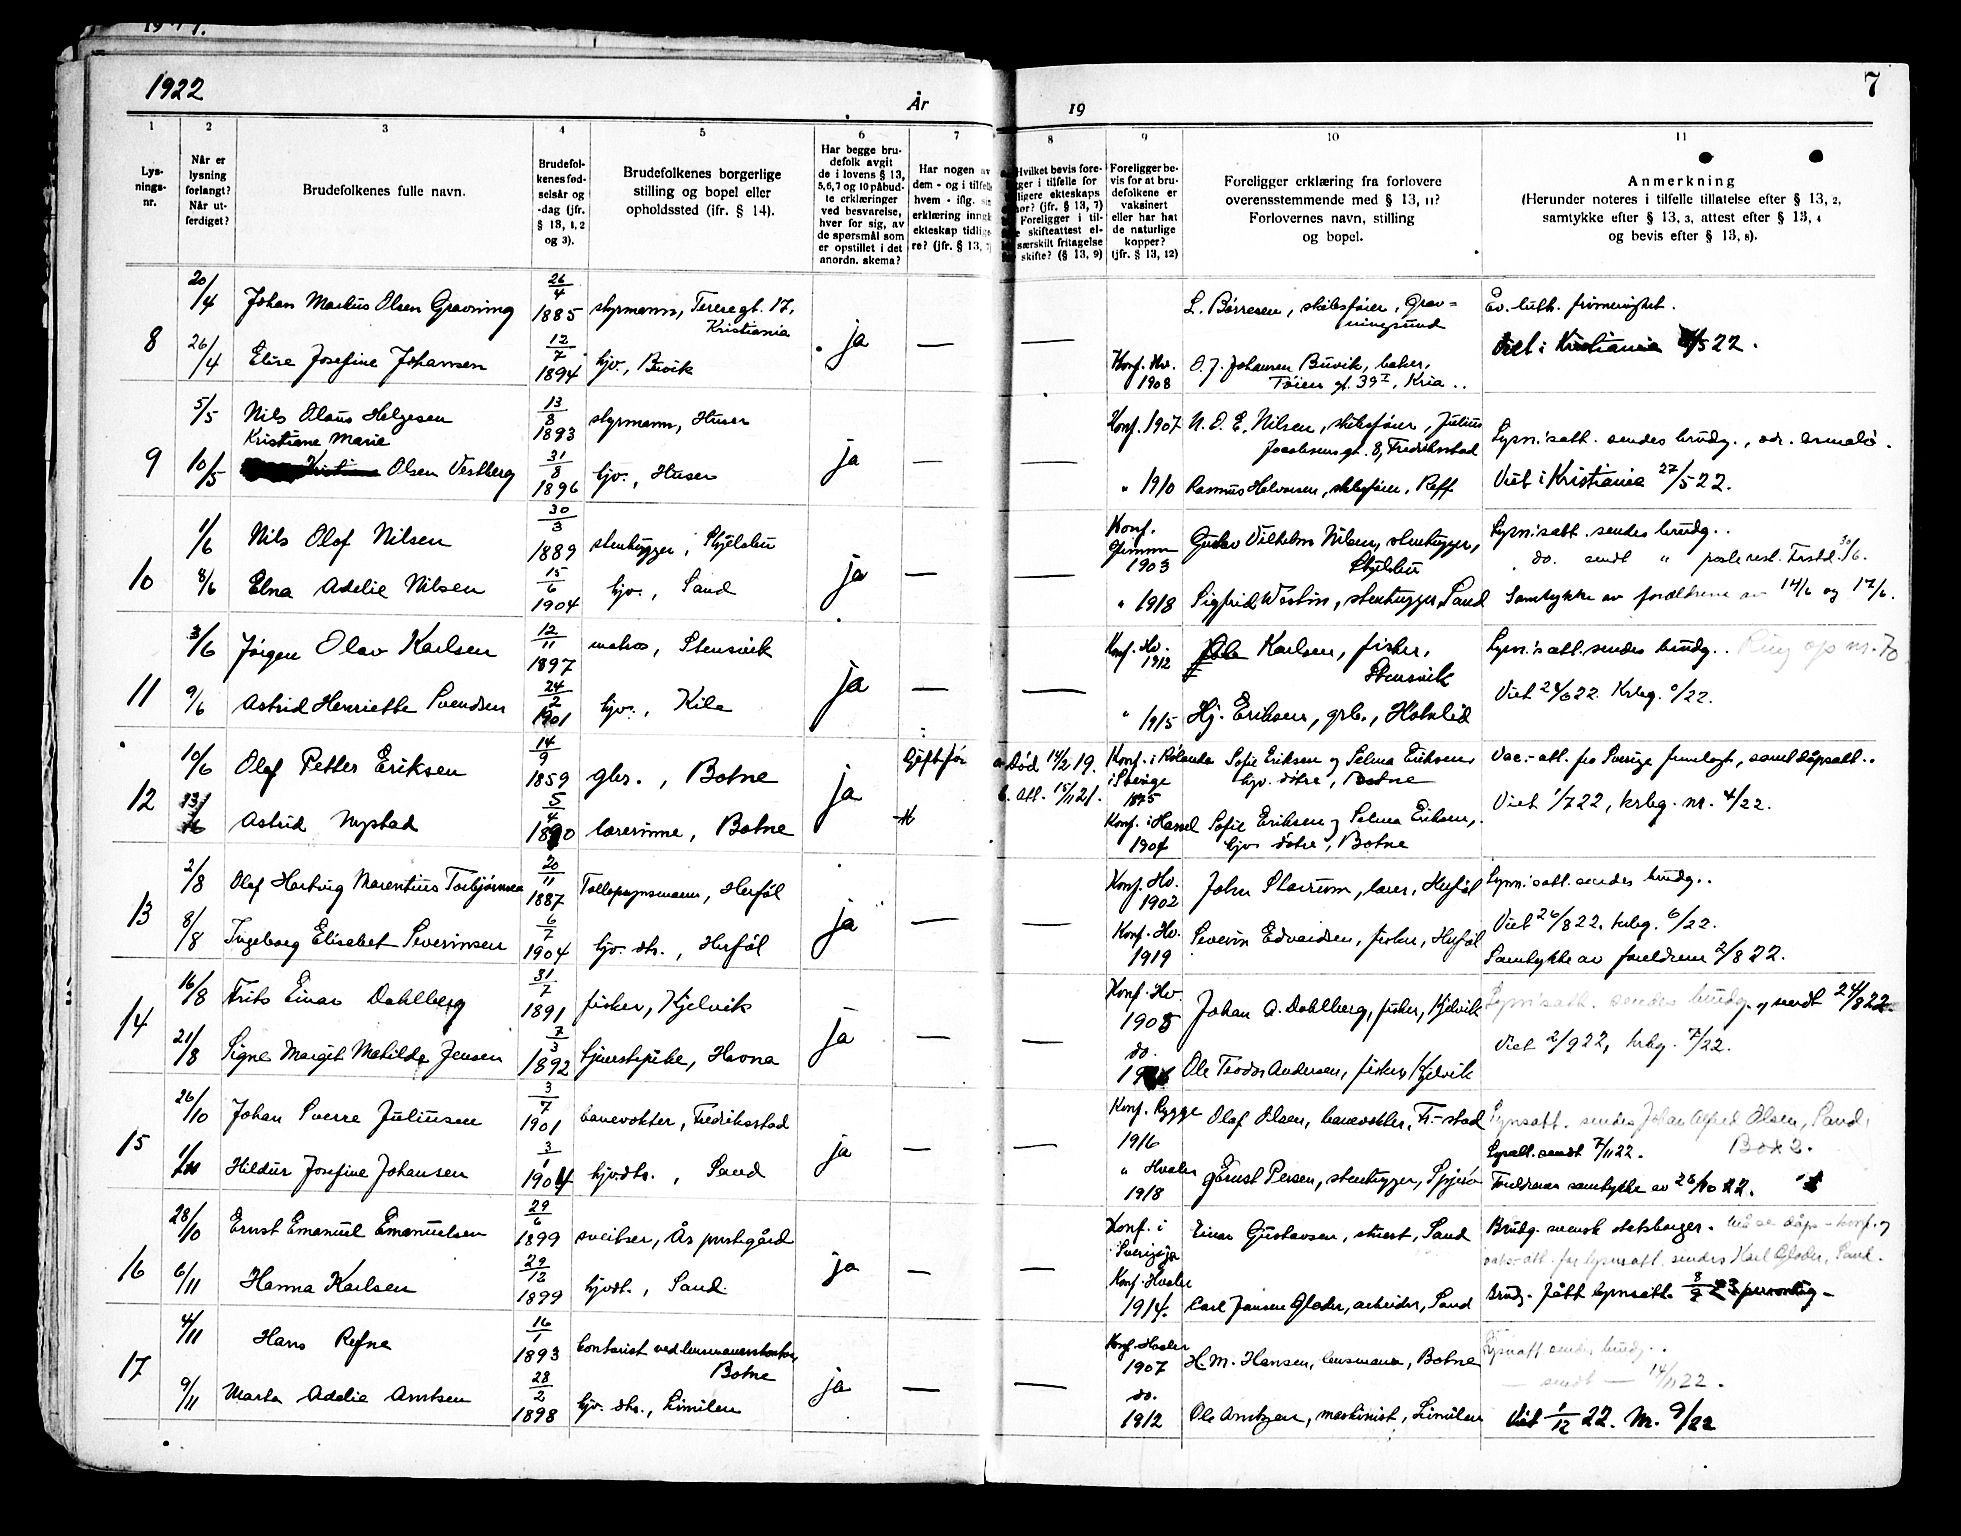 1922
År
19
7
1
2
3
4
5
6
7
8
9
10
11
Lys-
nings-
nr.
Når er
lysning
forlangt?
Når ut-
ferdiget?
Brudefolkenes fulle navn.
Brudefol-
kenes fød-
selsår og
-dag (jfr.
§ 13, 1, 2
og 3).
Brudefolkenes borgerlige
stilling og bopel eller
opholdssted (ifr. § 14).
Har begge bru-
defolk avgit
de i lovens § 13,
5,6,7 og 10 påbud-
te erklæringer
ved besvarelse,
hver for sig, av
de spørsmål som
er opstillet i det
anordn. skema?
Har nogen av
dem - og i tilfelle
hvem - iflg. sin
erklæring inngå
ekteskap tidlige
re? (jfr. § 13, 7
Hvilket bevis fore-
ger i tilfelle for
ligere ekteskaps
hør? (jfr. § 13, 7)
Foreligger i til-
e skifteattest el-
særskilt fritagelse
skifte? (§ 13, 9)
Foreligger be-
vis for at bru-
defolkene er
vaksinert
eller har hat
de naturlige
kopper?
(jfr. § 13, 12)
Foreligger erklæring fra forlovere
overensstemmende med § 13, 11?
Forlovernes navn, stilling
og bopel.
Anmerkning
(Herunder noteres i tilfelle tillatelse efter § 13, 2,
samtykke efter § 13, 3, attest efter § 13, 4
og bevis efter § 13, 8).
8
20/4 Johan Markus Olsen Gravning 26/4 1885 styrmann, Teresegt. 17, Kristiania
L. Børresen, skibsfører, Grav-
ningsund
Ev. luth. frimenighet.
26/4 Elise Josefine Johansen 12/7 1894 hjv., Buvik ja — —
Konf. Hv. 1908 O. J. Johansen Buvik, baker,
Tøien gt. 39 I, Kria..
Viet i Kristiania /5 22.
9
5/5 Nils Olaus Helgesen 13/8 1893 styrmann, Huser
Konf. 1907 N. O. E. Nilsen, skibsfører, Julius
Jacobsens gt. 8, Fredrikstad
Lysn.'satt. sendes brudg.,
Kristiane Marie
10/5 Olsen Vestberg 31/8 1896 hjv., Huser ja — —
" 1910 Rasmus Halvorsen, skibsfører, Reff
Viet i Kristiania 27/5 22.
10
1/6 Nils Olaf Nilsen 30/3 1889 stenhugger, Skjelsbu
Konf. Glemmen 1903 Gustav Vilhelm Nilsen, stenhugger,
Skjelsbu
Lysn.'satt. sendes brudg..
do. sendt " poste rest. Frstd. 30/6.
8/6 Elna Adelie Nilsen 15/6 1904 hjv., Sand ja — —
" 1918 Sigfrid Westin, stenhugger, Sand
Samtykke av forældrene av 14/6 og 17/6.
11
3/6 Jørgen Olav Karlsen 12/11 1897 matros, Stensvik
Konf. Hv. 1912 Ole Karlsen, fisker,
Stensvik
Lysn.'satt. sendes brudg.. Ring op nr. 70
9/6 Astrid Henriette Svendsen 24/2 1901 hjv., Kile ja — —
" 1915 Hj. Eriksen, grb., Holtelid
Viet 24/6 22. Krbg. /22.
12
10/6 Olof Petter Eriksen 14/9 1859 gbr., Botne
Gift før
a. Død 14/2 19.
b. att. 15/11 21.
Konf. i Rölanda
i Sverige
1875
Sofie Eriksen og Selma Eriksen,
hjv. døtre, Botne
Vac.-att. fra Sverige fremlagt, samt dåpsatt..
13/ Astrid Nystad 5/4 1890 lærerinne, Botne ja
Konf. i Hassel
1904
Sofie Eriksen og Selma Eriksen,
hjv. døtre, Botne
Viet 1/7 22, krbg. nr. 4/22.
13
2/8 Olaf Hartvig Marentius Torbjørnsen 20/11 1887 Tollopsynsmann, Herføl
Konf. Hv. 1902 John Stavrum, lærer, Herføl
Lysn.'satt. sendes brudg..
8/8 Ingeborg Elisabet Severinsen 6/7 1904 hjv. dtr., Herføl ja — —
Konf. Hv. 1919 Severin Edvardsen, fisker, Herføl
Viet 26/8 22. krbg. 6/22.
Samtykke av foreldrene 2/8 22.
14
16/8 Frits Einar Dahlberg 31/7 1891 fisker, Kjelvik
Konf. Hv. 1905 Johan A. Dahlberg, fisker, Kjelvik
Lysn.'satt. sendes brudg., sendt 24/8 22
21/8 Signe Margit Matilde Jensen 7/3 1892 tjenestepike, Hovna ja — —
do. Ole Teodor Andersen, fisker, Kjelvik
Viet 2/9 22, krbg. 7/22.
15
26/10 Johan Sverre Juliussen 3/7 1901 banevokter, Fredrikstad
Konf. Rygge 1916 Olaf Olsen, banevokter, Fr.-stad
Lysnsatt. sendes Johan Alfred Olsen, Sand,
Box 2.
Lysatt. sendt 7/11 22.
1/11 Hildur Josefine Johansen 3/1 1904 hjv. dtr., Sand ja — —
" Hvaler 1918 Ernst Persen, stenhugger, Spjærø
Foreldrenes samtykke av 26/10 22.
16
28/10 Ernst Emanuel Emanuelsen 29/6 1899 sveitser, Ås prestegård
Konf. i
Sverige ja
Einar Gustavsen, stuert, Sand
Brudg. svensk statsborger.
6/11 Hanna Karlsen 29/12 1899 hjv. dt., Sand ja — —
Konf. Hvaler 1914. Carl Jansen Gloder, arbeider, Sand
lysnsatt. sendes Karl Gloder, Sand.
Brudg. fått lysnsatt. 8/9 23 personlig
17
4/11 Hans Refne 16/1 1893 kontorist ved lensmannskontoret,
Botne
Konf. Hvaler 1907 H. M. Hansen, lensmann, Botne
Lysnatt. sendes brudg..
— sendt — 14/11 22.
9/11 Marta Adelie Arntsen 28/2 1898 hjv. dtr., Limilen ja — —
do. 1912 Ole Arntzen, maskinist, Limilen
Viet 1/12 22. nr. 9/22